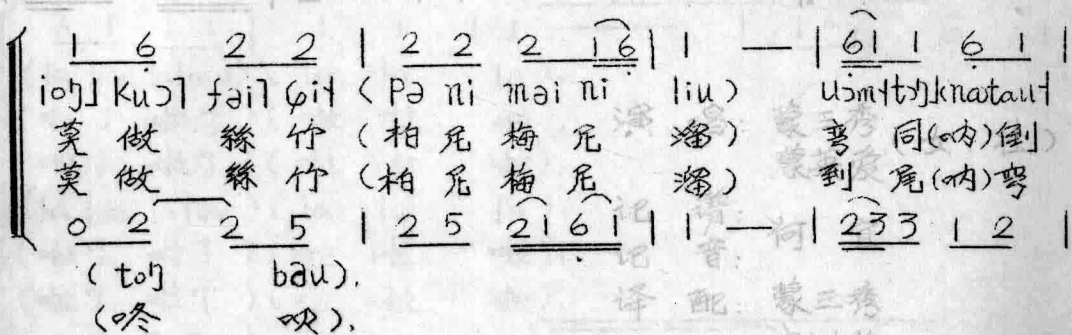 1 6 2 2 | 2 2 2 1 6 | 1 — | 6 1 1 6 1 |
ioŋ˩ Kuɔ˥ fəi˥ ɕi˧ (Pə ni məi ni liu) uɔm˧tɔŋ˩knatau˧
莫 做 絲 竹 (柏 尼 梅 尼 溜) 弯 同(呐)倒
莫 做 絲 竹 (柏 尼 梅 尼 溜) 到 尾(呐)弯
0 2 2 5 | 2 5 2 1 6 1 | 1 — | 2 3 3 1 2 |
(toŋ bəu).
(咚 ).